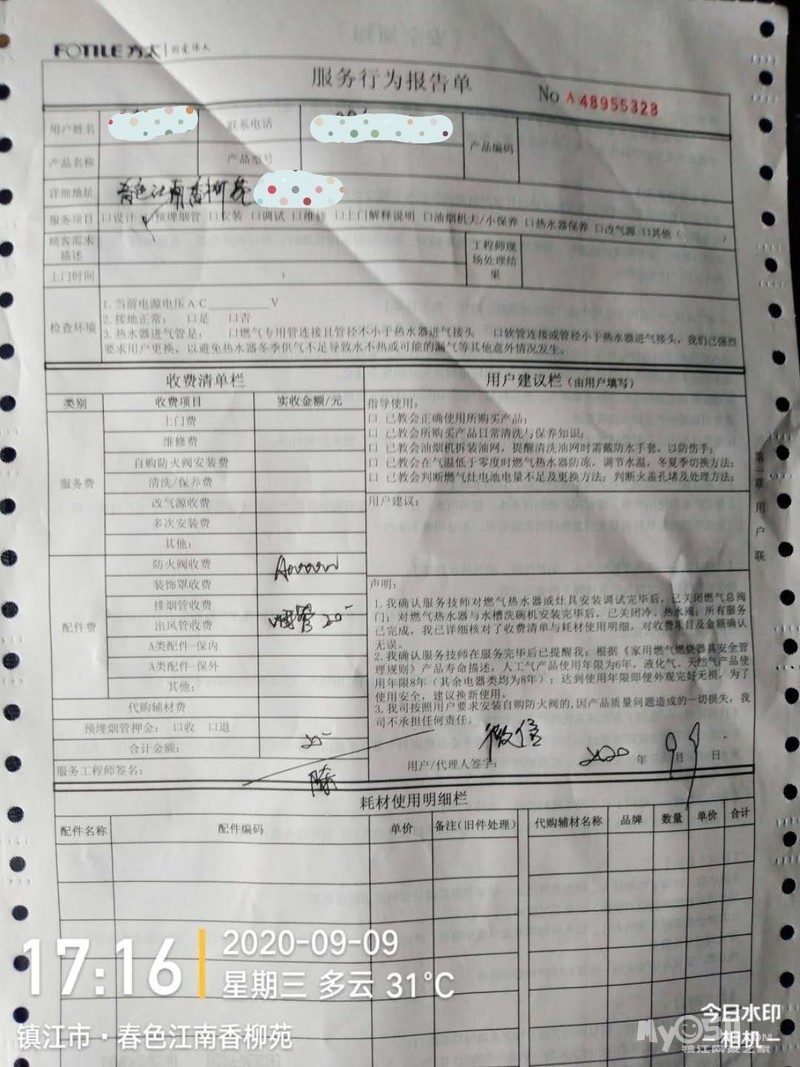 FOTILE 方太 因爱伟大
服务行为报告单
No A 48955328
用户姓名 联系电话 产品编码
产品名称 产品型号
详细地址 春色江南香柳苑
服务项目 口设计 预埋烟管 口安装 口调试 口维修 口上门解释说明 口油烟机大/小保养 口热水器保养 口改气源 口其他（ ）
顾客需求描述 工程师现场处理结果
上门时间
检查环境
1.当前电源电压AC________V
2.接地正常： 口是 口否
3.热水器进气管是： 口燃气专用管连接且管径不小于热水器进气接头 口软管连接或管径小于热水器进气接头，我们已强烈
要求用户更换，以避免热水器冬季供气不足导致水不热或可能的漏气等其他意外情况发生。
收费清单栏 用户建议栏（由用户填写）
类别 收费项目 实收金额/元
服务费
上门费
维修费
自购防火阀安装费
清洗/保养费
改气源收费
多次安装费
其他：
配件费
防火阀收费
装饰罩收费
排烟管收费
出风管收费 20-
A类配件-保内
A类配件-保外
其他：
代购辅材费
预埋烟管押金：口收 口退
合计金额： 20-
服务工程师签名： 滕
指导使用：
口 已教会正确使用所购买产品；
口 已教会所购买产品日常清洗与保养知识；
口 已教会油烟机拆装油网，提醒清洗油网时需戴防水手套，以防伤手；
口 已教会在气温低于零度时燃气热水器防冻，调节水温，冬夏季切换方法；
口 已教会判断燃气灶电池电量不足及更换方法；判断火盖孔堵及处理方法；
用户建议：
声明：
1.我确认服务技师对燃气热水器或灶具安装调试完毕后，已关闭燃气总阀
门；对燃气热水器与水槽洗碗机安装完毕后，已关闭冷、热水阀；所有服务
已完成，我已详细核对了收费清单与耗材使用明细，对收费项目及金额确认
无误。
2.我确认服务技师在服务完毕后已提醒我：根据《家用燃气燃烧器具安全管
理规则》产品寿命描述，人工气产品使用年限为6年，液化气、天然气产品使
用年限8年（其余电器类均为8年）；达到使用年限即便外观完好无损，为了
使用安全，建议换新使用。
3.我司按照用户要求安装自购防火阀的，因产品质量问题造成的一切损失，我
司不承担任何责任。
微信
用户/代理人签字： 2020 年 9 月 9 日
第一联 用户联
耗材使用明细栏
配件名称 配件编码 单价 备注（旧件处理） 代购辅材名称 品牌 数量 单价 合计
17:16
2020-09-09
星期三 多云 31℃
镇江市·春色江南香柳苑
今日水印
相机